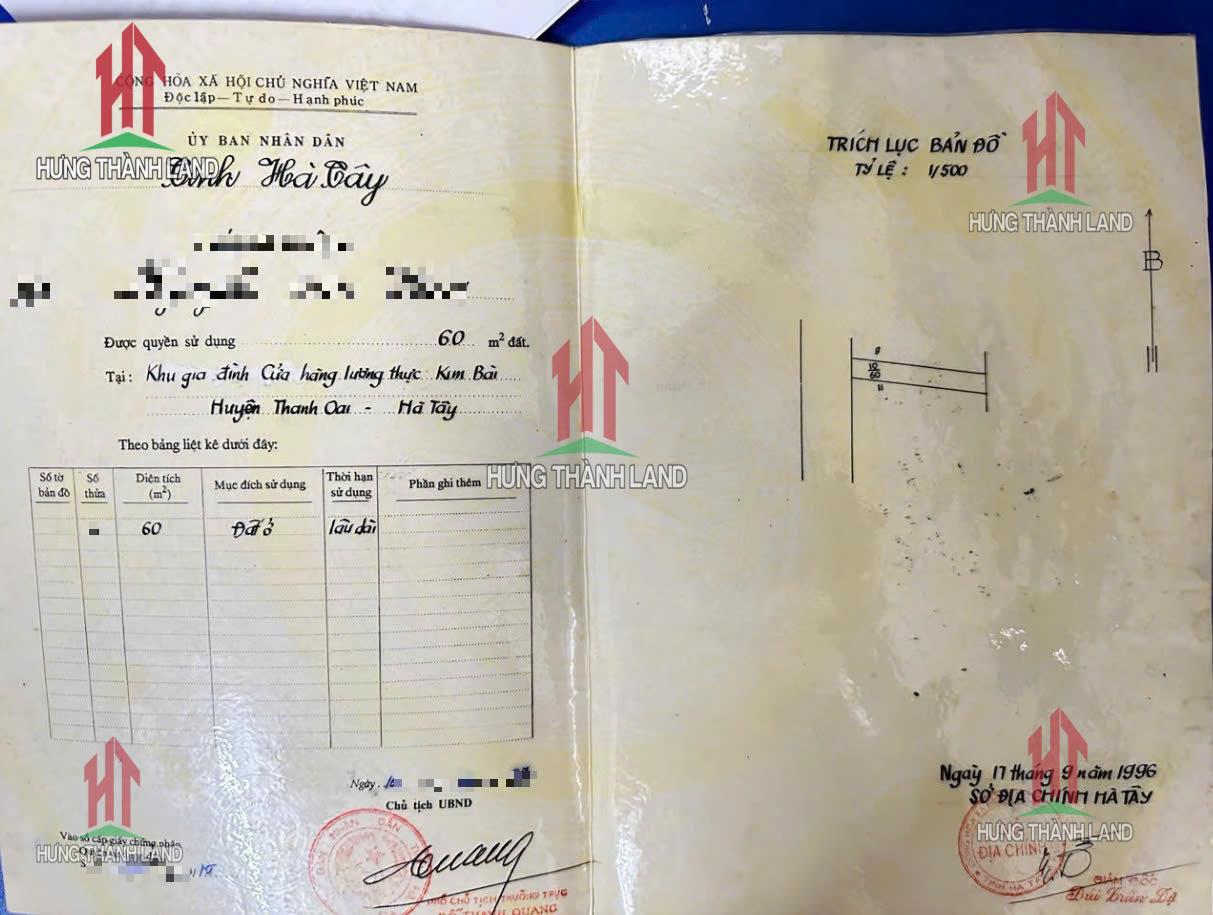 CỘNG HÒA XÃ HỘI CHỦ NGHĨA VIỆT NAM
Độc lập — Tự do — Hạnh phúc
ỦY BAN NHÂN DÂN
Tỉnh Hà Tây
HƯNG THÀNH LAND
Được quyền sử dụng 60 m² đất.
Tại: Khu gia đình Cửa hàng lương thực Kim Bài
Huyện Thanh Oai - Hà Tây
Theo bảng liệt kê dưới đây:
Số tờ bản đồ Số thửa Diện tích (m²) Mục đích sử dụng Thời hạn sử dụng Phần ghi thêm
60 Đất ở lâu dài
Ngày
Chủ tịch UBND
Vào sổ cấp giấy chứng nhận
HƯNG THÀNH LAND
NHÂN DÂN
Quang
PHÓ CHỦ TỊCH THƯỜNG TRỰC
THANH QUANG
HƯNG THÀNH LAND
TRÍCH LỤC BẢN ĐỒ
TỶ LỆ : 1/500
HƯNG THÀNH LAND
B
9
10
60
11
Ngày 17 tháng 9 năm 1996
SỞ ĐỊA CHÍNH HÀ TÂY
HƯNG THÀNH LAND
ĐỊA CHÍNH
TỈNH HÀ TÂY
GIÁM ĐỐC